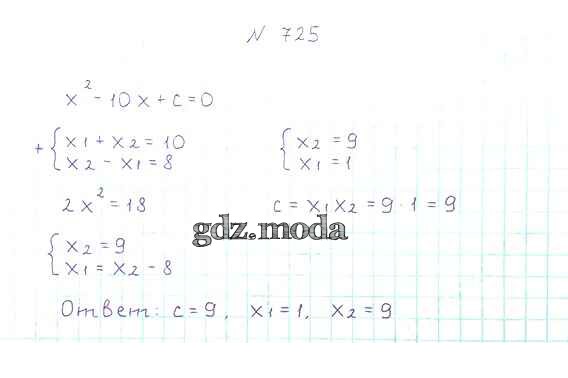 N 725
x² - 10x + c = 0
+ { x1 + x2 = 10
x2 - x1 = 8
{ x2 = 9
x1 = 1
2x² = 18
c = x1x2 = 9 · 1 = 9
gdz.moda
{ x2 = 9
x1 = x2 - 8
Ответ: c = 9, x1 = 1, x2 = 9